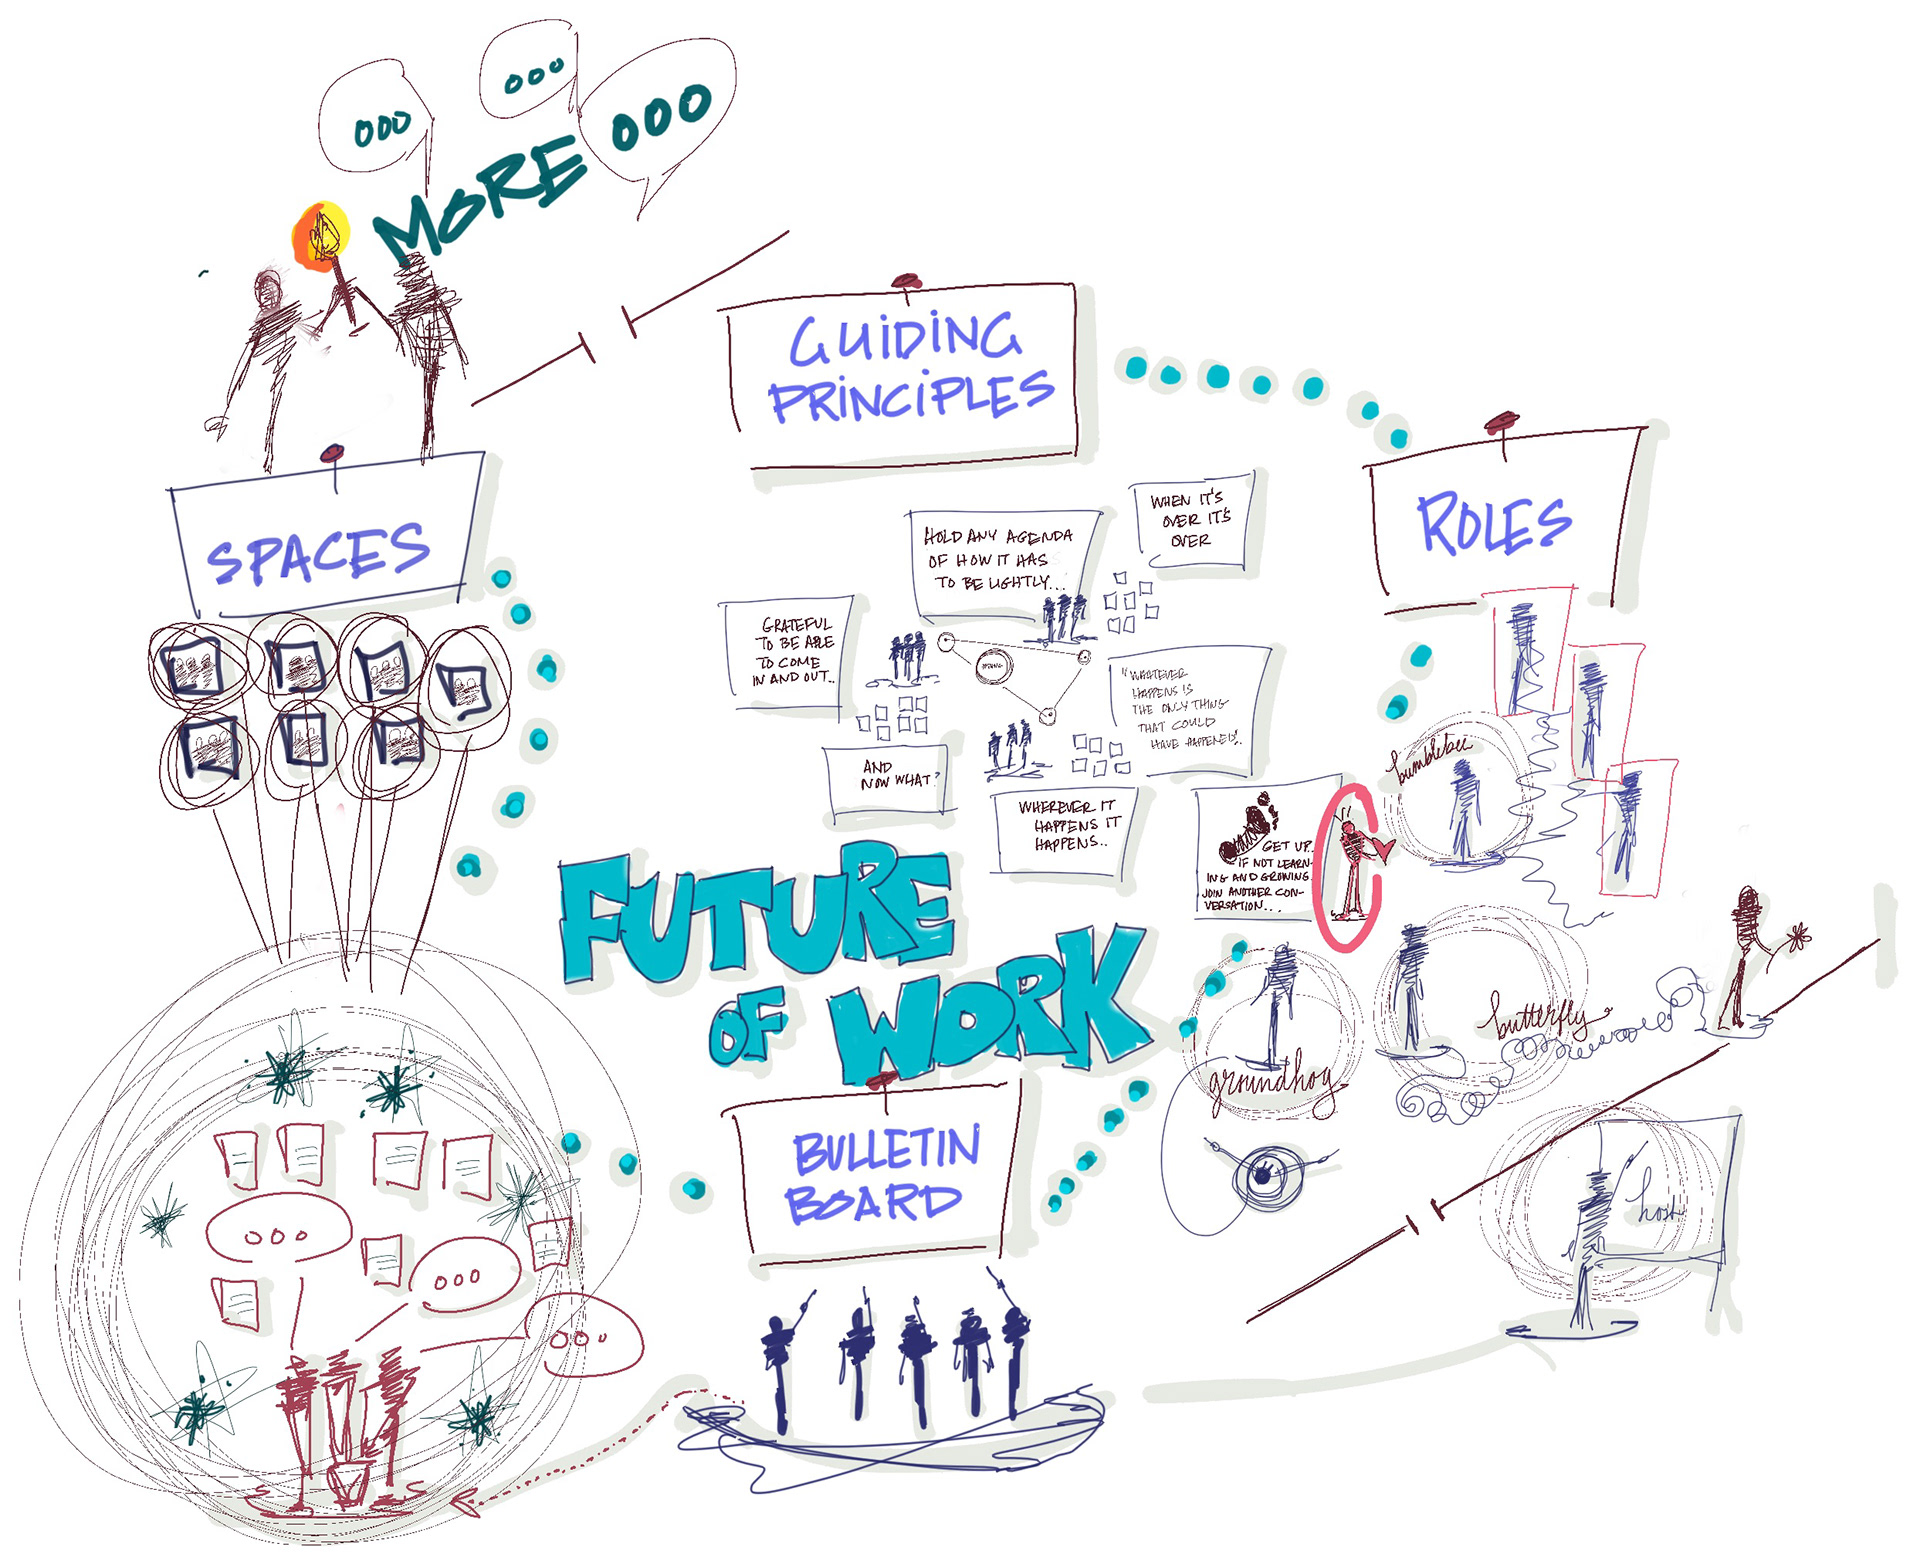 ooo
ooo
MORE ooo
GUIDING
PRINCIPLES
SPACES
ROLES
WHEN IT'S
OVER IT'S
OVER
HOLD ANY AGENDA
OF HOW IT HAS
TO BE LIGHTLY...
GRATEFUL
TO BE ABLE
TO COME
IN AND OUT..
"WHATEVER
HAPPENS IS
THE ONLY THING
THAT COULD
HAVE HAPPENED"..
AND
NOW WHAT?
WHEREVER IT
HAPPENS IT
HAPPENS..
bumblebee
GET UP..
IF NOT LEARN-
ING AND GROWING
JOIN ANOTHER CON-
VERSATION...
FUTURE
OF WORK
butterfly
groundhog
host
BULLETIN
BOARD
ooo
ooo
ooo